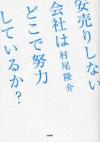 安売りしない
会社は
どこで努力
しているか？
村尾隆介